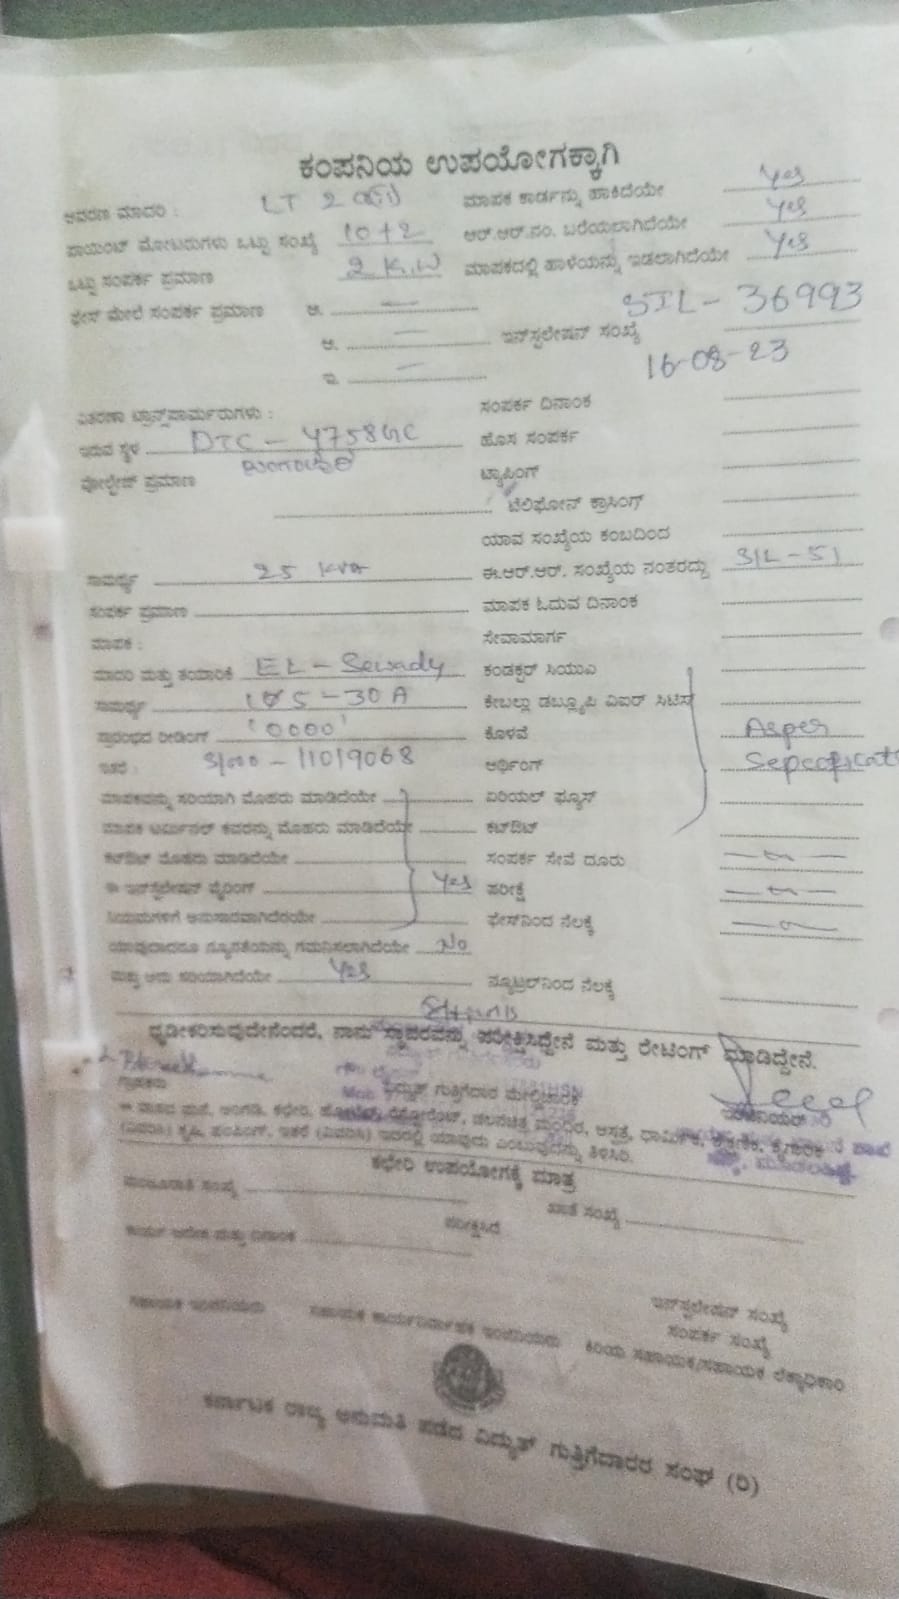 ಕಂಪನಿಯ ಉಪಯೋಗಕ್ಕಾಗಿ
ಆವರಣ ಮಾದರಿ : LT 2 ಮಾಪಕ ಕಾರ್ಡನ್ನು ಹಾಕಿದೆಯೇ Yes
ಪಾಯಿಂಟ್ ಮೋಟರುಗಳು ಒಟ್ಟು ಸಂಖ್ಯೆ 10+2 ಆರ್.ಆರ್.ನಂ. ಬರೆಯಲಾಗಿದೆಯೇ Yes
ಒಟ್ಟು ಸಂಪರ್ಕ ಪ್ರಮಾಣ 2 K.W ಮಾಪಕದಲ್ಲಿ ಹಾಳೆಯನ್ನು ಇಡಲಾಗಿದೆಯೇ Yes
ಫೇಸ್ ಮೇಲೆ ಸಂಪರ್ಕ ಪ್ರಮಾಣ ಅ. —
SIL - 36993
ಆ. — ಇನ್‌ಸ್ಟಲೇಷನ್ ಸಂಖ್ಯೆ
16-08-23
ಇ. —
ವಿತರಣಾ ಟ್ರಾನ್ಸ್‌ಫಾರ್ಮರುಗಳು : ಸಂಪರ್ಕ ದಿನಾಂಕ
ಇರುವ ಸ್ಥಳ DTC - ಹೊಸ ಸಂಪರ್ಕ
ವೋಲ್ಟೇಜ್ ಪ್ರಮಾಣ ಟ್ಯಾಪಿಂಗ್
ಟೆಲಿಫೋನ್ ಕ್ರಾಸಿಂಗ್
ಯಾವ ಸಂಖ್ಯೆಯ ಕಂಬದಿಂದ
ಸಾಮರ್ಥ್ಯ 25 KVA ಈ.ಆರ್.ಆರ್. ಸಂಖ್ಯೆಯ ನಂತರದ್ದು SIL - 51
ಸಂಪರ್ಕ ಪ್ರಮಾಣ ಮಾಪಕ ಓದುವ ದಿನಾಂಕ
ಮಾಪಕ : ಸೇವಾಮಾರ್ಗ
ಮಾದರಿ ಮತ್ತು ತಯಾರಿಕೆ EL - ಕಂಡಕ್ಟರ್ ಸಿಯುಎ
ಸಾಮರ್ಥ್ಯ 5 - 30 A ಕೇಬಲ್ಲು ಡಬ್ಲ್ಯೂಪಿ ವಿಐರ್ ಸಿಟಿಸ್
ಪ್ರಾರಂಭದ ರೀಡಿಂಗ್ '0000' ಕೊಳವೆ Asper
ಇತರೆ : 11019068 ಆರ್ಥಿಂಗ್
ಮಾಪಕವನ್ನು ಸರಿಯಾಗಿ ಮೊಹರು ಮಾಡಿದೆಯೇ ಏರಿಯಲ್ ಫ್ಯೂಸ್
ಮಾಪಕ ಟರ್ಮಿನಲ್ ಕವರನ್ನು ಮೊಹರು ಮಾಡಿದೆಯೇ ಕಟ್‌ಔಟ್
ಕಟ್‌ಔಟ್ ಮೊಹರು ಮಾಡಿದೆಯೇ ಸಂಪರ್ಕ ಸೇವೆ ದೂರು
ಈ ಇನ್‌ಸ್ಟಲೇಷನ್ ವೈರಿಂಗ್ Yes ಪರೀಕ್ಷೆ
ನಿಯಮಗಳಿಗೆ ಅನುಸಾರವಾಗಿದೆಯೇ ಫೇಸ್‌ನಿಂದ ನೆಲಕ್ಕೆ
ಯಾವುದಾದರೂ ನ್ಯೂನತೆಯನ್ನು ಗಮನಿಸಲಾಗಿದೆಯೇ No
ಮತ್ತು ಅದು ಸರಿಯಾಗಿದೆಯೇ Yes ನ್ಯೂಟ್ರಲ್‌ನಿಂದ ನೆಲಕ್ಕೆ
ದೃಢೀಕರಿಸುವುದೇನೆಂದರೆ, ನಾನು ಸ್ಥಾವರವನ್ನು ಪರೀಕ್ಷಿಸಿದ್ದೇನೆ ಮತ್ತು ರೇಟಿಂಗ್ ಮಾಡಿದ್ದೇನೆ.
ಗ್ರಾಹಕರು ವಿದ್ಯುತ್ ಗುತ್ತಿಗೆದಾರ ಮೇಲ್ವಿಚಾರಕ ಇಂಜಿನಿಯರ್
(ವಿವರಿಸಿ) ಕೃಷಿ, ಪಂಪಿಂಗ್, ಇತರೆ (ವಿವರಿಸಿ) ಇದರಲ್ಲಿ ಯಾವುದು ಎಂಬುವುದನ್ನು ತಿಳಿಸಿರಿ.
ಕಛೇರಿ ಉಪಯೋಗಕ್ಕೆ ಮಾತ್ರ
ಮಂಜೂರಾತಿ ಸಂಖ್ಯೆ ಖಾತೆ ಸಂಖ್ಯೆ
ಪರೀಕ್ಷಿಸಿದೆ
ಇನ್‌ಸ್ಟಲೇಷನ್ ಸಂಖ್ಯೆ
ಸಂಪರ್ಕ ಸಂಖ್ಯೆ
ಸಹಾಯಕ ಇಂಜಿನಿಯರು ಸಹಾಯಕ ಕಾರ್ಯನಿರ್ವಾಹಕ ಇಂಜಿನಿಯರು ಕಿರಿಯ ಸಹಾಯಕ/ಸಹಾಯಕ ಲೆಕ್ಕಾಧಿಕಾರಿ
ಕರ್ನಾಟಕ ರಾಜ್ಯ ಅನುಮತಿ ಪಡೆದ ವಿದ್ಯುತ್ ಗುತ್ತಿಗೆದಾರರ ಸಂಘ (ರಿ)